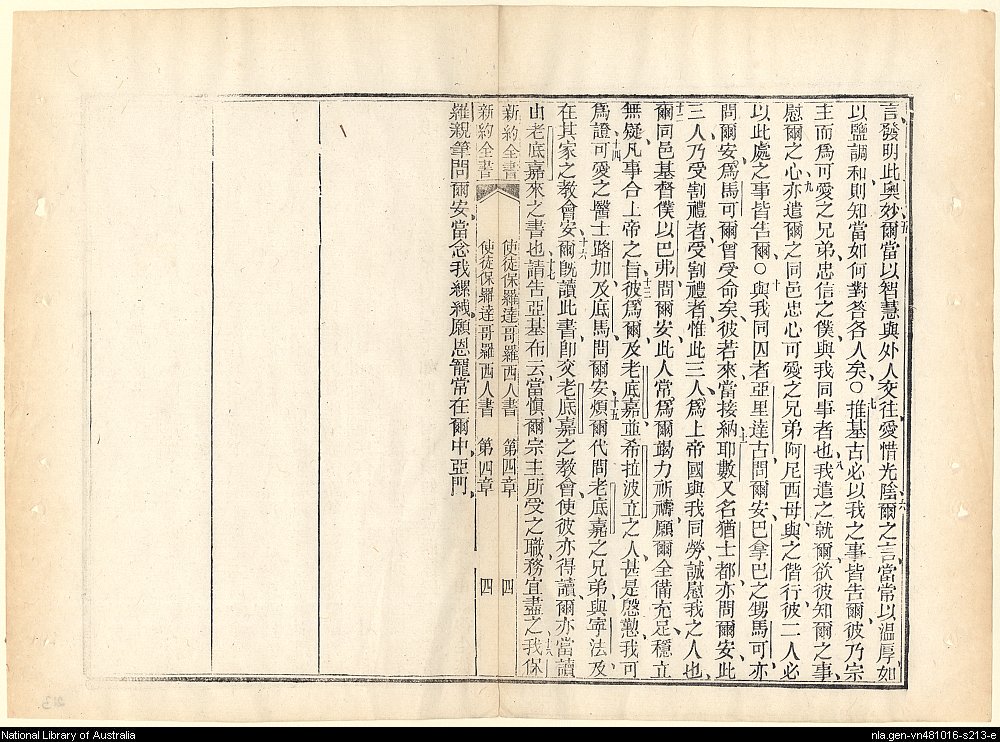 言、發明此奧妙、爾當以智慧與外人交往、愛惜光陰、爾之言、當常以温厚、如
以鹽調和、則知當如何對答各人矣○推基古必以我之事皆告爾、彼乃宗
主而爲可愛之兄弟、忠信之僕、與我同事者也、我遣之就爾、欲彼知爾之事、
慰爾之心、亦遣爾之同邑忠心可愛之兄弟阿尼西母、與之偕行、彼二人必
以此處之事皆告爾○與我同囚者亞里達古問爾安、巴拿巴之甥馬可亦
問爾安、爲馬可爾曾受命矣、彼若來當接納、耶數又名猶士都亦問爾安、此
三人乃受割禮者、受割禮者、惟此三人、爲上帝國與我同勞、誠慰我之人也、
爾同邑基督僕以巴弗問爾安、此人常爲爾竭力祈禱、願爾全備充足、穩立
無疑、凡事合上帝之旨、彼爲爾、及老底嘉並希拉波立之人、甚是慇懃、我可
爲證、可愛之醫士路加及底馬問爾安、煩爾代問老底嘉之兄弟、與寧法及
在其家之敎會安、爾旣讀此書、卽交老底嘉之敎會、使彼亦得讀、爾亦當讀
由老底嘉來之書也、請告亞基布云、當愼爾宗主所受之職務、宜盡之、我保
新約全書 使徒保羅達哥羅西人書 第四章 四
新約全書 使徒保羅達哥羅西人書 第四章 四
羅親筆問爾安、當念我縲絏、願恩寵常在爾中、亞門、
五
六
七
八
九
十
十一
十二
十三
十四
十五
十六
十七
十八
213
National Library of Australia
nla.gen-vn481016-s213-e